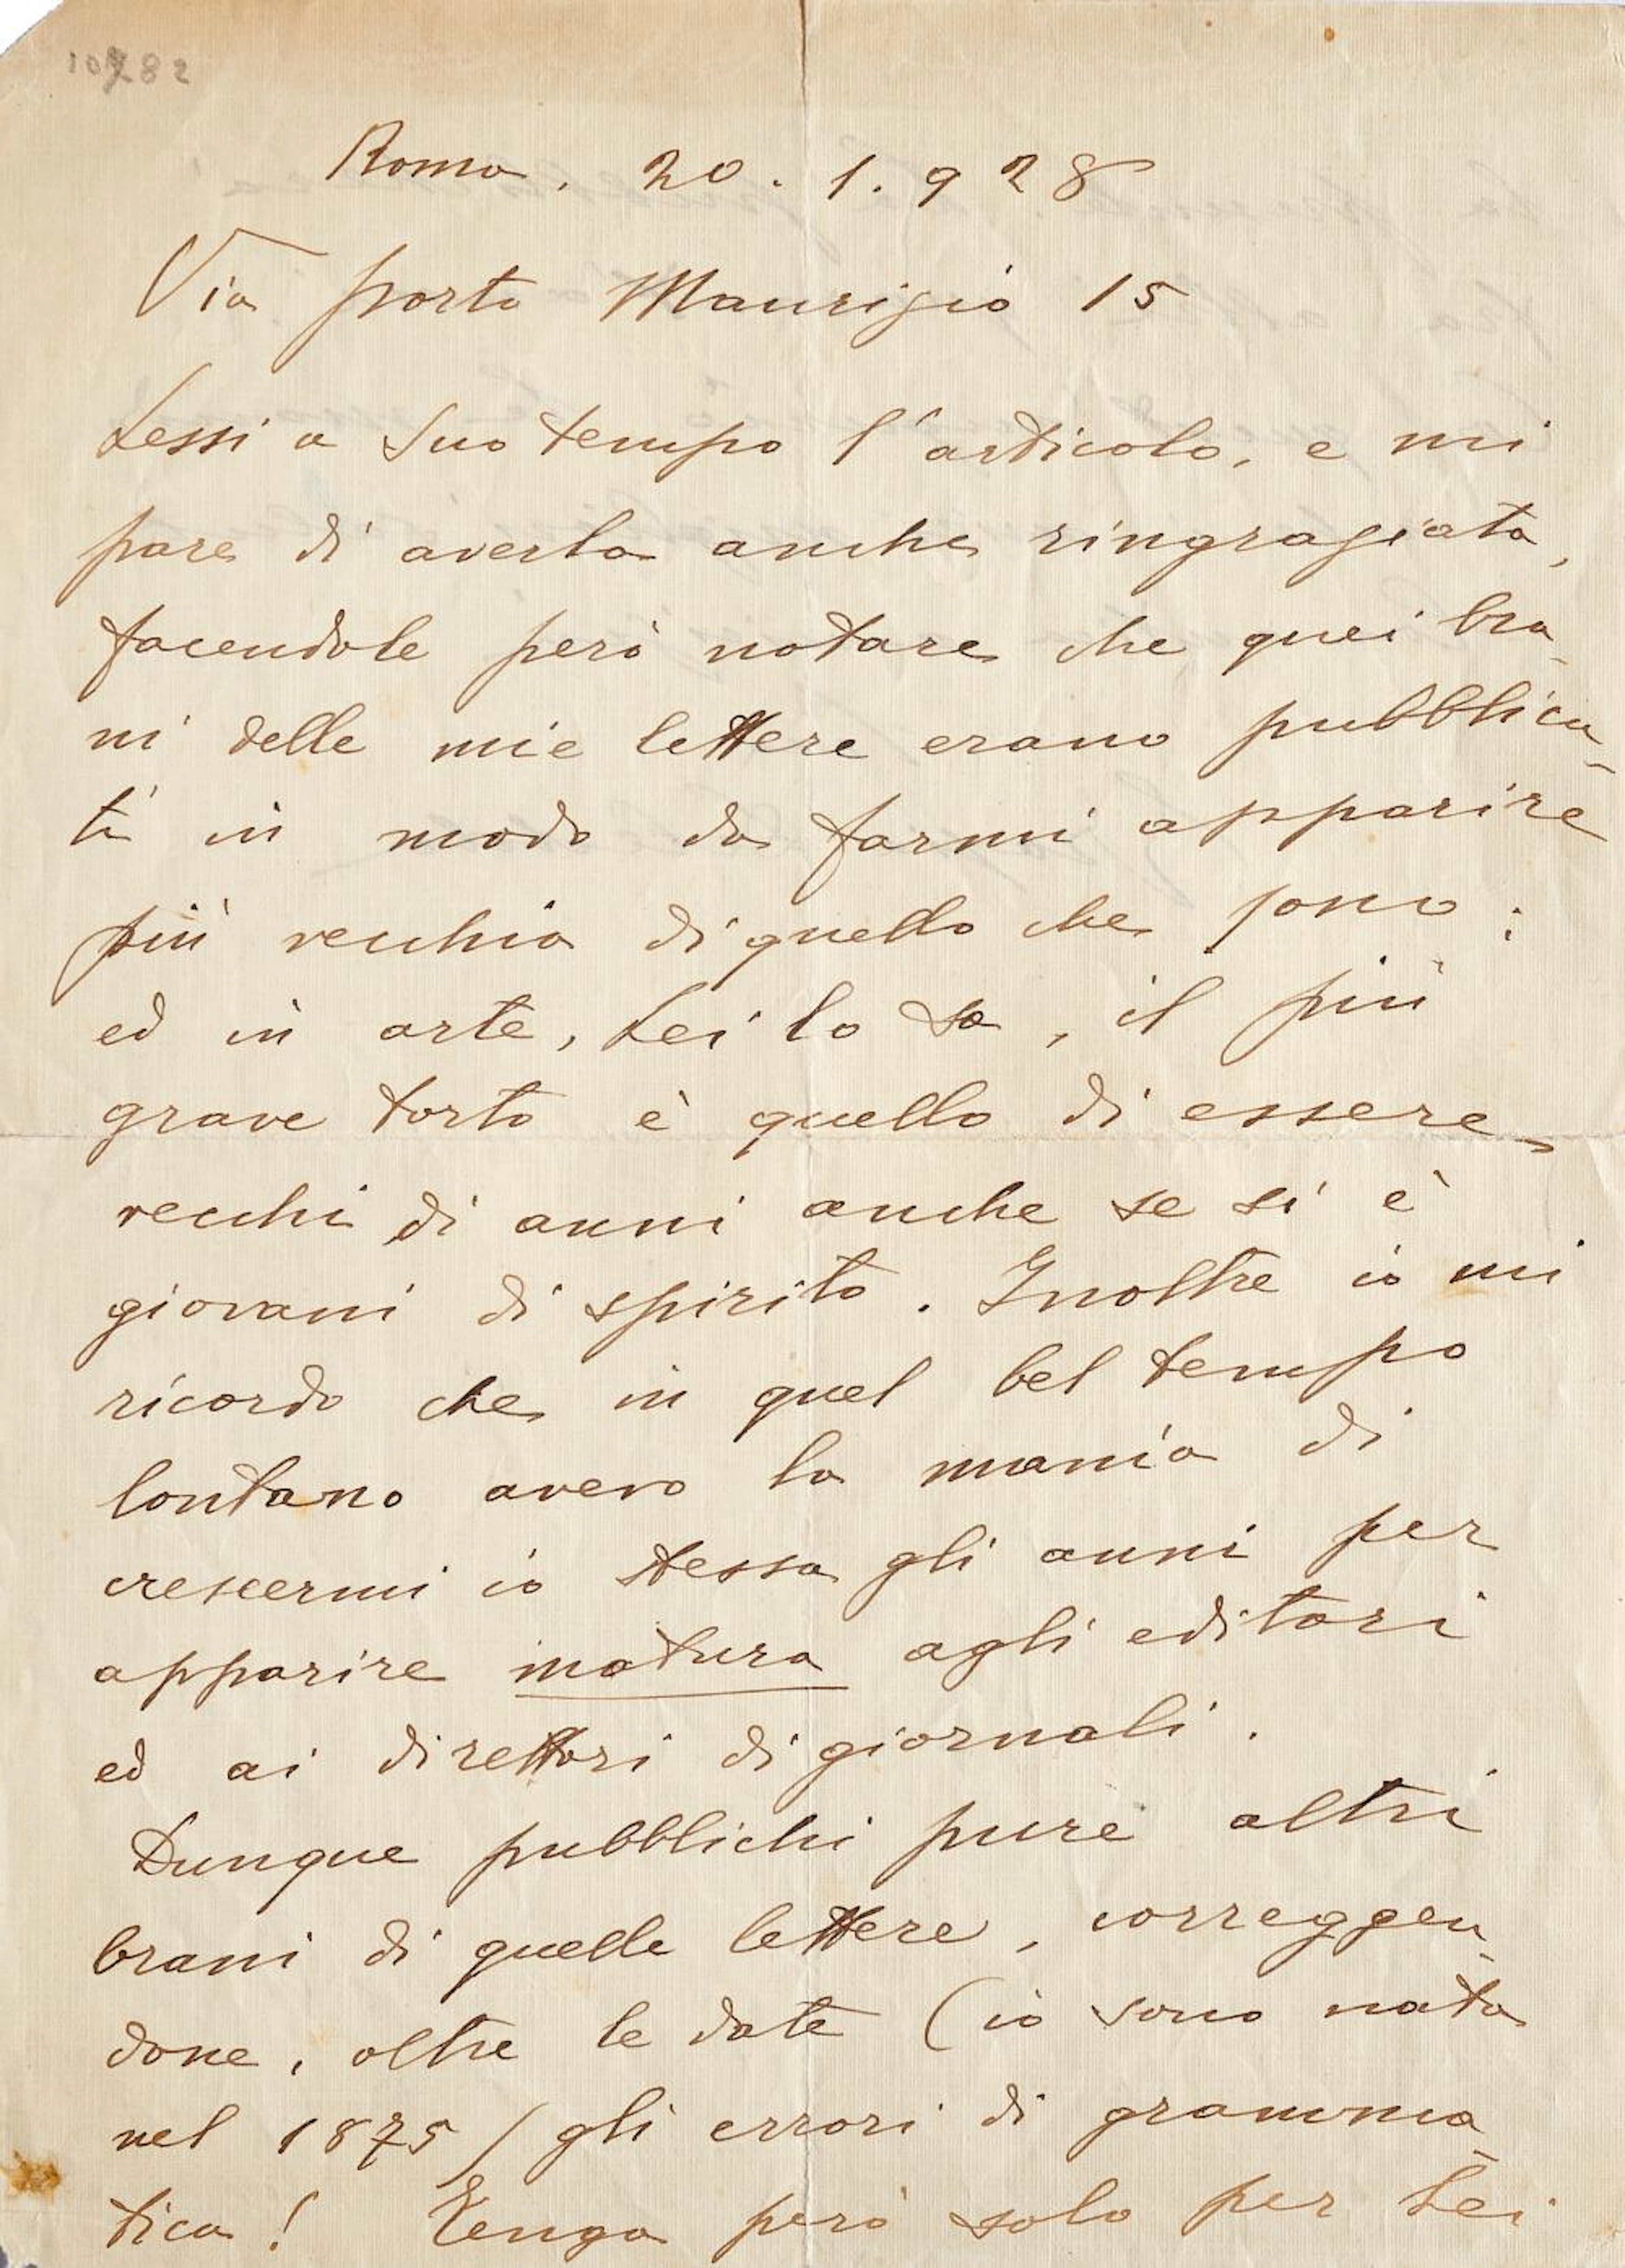 10782
Roma, 20. 1. 928
Via Porto Maurizio 15
Lessi a Suo tempo l'articolo, e mi
pare di averla anche ringraziata,
facendole però notare che quei bra-
ni delle mie lettere erano pubblica-
ti in modo da farmi apparire
più vecchia di quello che sono:
ed in arte, Lei lo sa, il più
grave torto è quello di essere
vecchi di anni anche se si è
giovani di spirito. Inoltre io mi
ricordo che in quel bel tempo
lontano avevo la mania di
crescermi io stessa gli anni per
apparire matura agli editori
ed ai direttori di giornali.
Dunque pubblichi pure altri
brani di quelle lettere, correggen-
done, oltre le date (io sono nata
nel 1875) gli errori di gramma-
tica! Tenga però solo per Lei